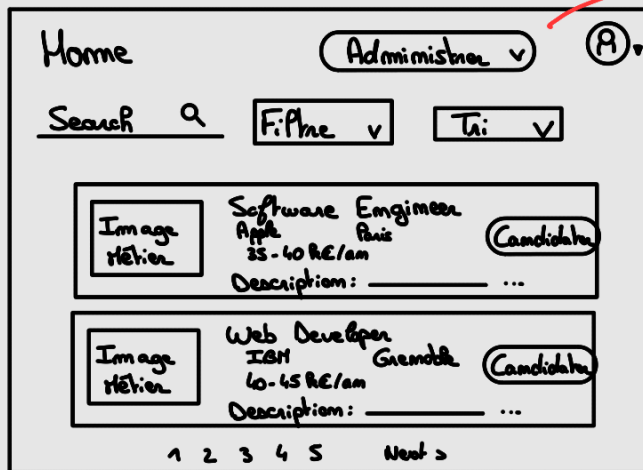 Home Administrer v A
Search Filtre v Tri v
Image Métier
Software Engineer
Apple Paris
35-40 k€/an
Description: ...
Candidater
Image Métier
Web Developer
IBM Grenoble
40-45 k€/an
Description: ...
Candidater
1 2 3 4 5 Next >